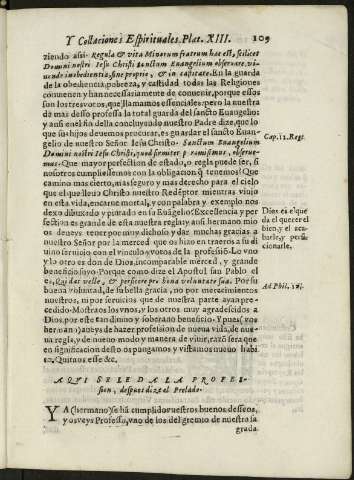 Y Collaciones Espirituales. Plat. XIII. 109
ziendo assi. Regula & vita Minorum fratrum hæc est, scilicet
Domini nostri Iesu Christi sanctum Euangelium obseruare, vi-
uendo in obedientia, sine proprio, & in castitate. En la guarda
de la obediencia, pobreza, y castidad todas las Religiones
conuienen y han necessariamente de conuenir, porque essos
son los tres votos, que llamamos essenciales: pero la nuestra
da mas desso professa la total guarda del sancto Euangelios
y ansi en el fin della concluyando nuestro Padre dize, que lo
que su hijos deuemos procurar, es guardar el sancto Euan-
gelio de nuestro Señor Iesu Christo. Sanctum Euangelium
Domini nostri Iesu Christi, quod firmiter promisimus, obserue-
mus. Que mayor perfecion de estado, o regla puede ser, si
nosotros cumplimos con la obligacion q̃ tenemos? Que
camino mas cierto, mas seguro y mas derecho para el cielo
que el que lleuo Christo nuestro Redẽptor mientras viujo
en esta vida, encarne mortal, y con palabra y exemplo nos
dexo dibuxado y pintado en su Euãgelio? Excelencia y per
section es grande de esta nuestra regla, y ansi hermano mio
os deueys tener por muy dichoso y dar muchas gracias a
nuestro Señor por la merced que os hizo en traeros a su di
uino seruicio con el vinculo y votos de la professiõ. Lo vno
y lo otro es don de Dios, incomparable merced, y grande
beneficio suyo. Porque como dize el Apostol san Pablo el
es, Qui dat velle, & perficere pro bona voluntate sua. Por su
buena voluntad, de su bella gracia, no por merecimientos
nuestros, ni por seruicios que de nuestra parte aya n pre-
cedido. Mostraos los vnos, y los otros muy agradescidos a
Dios, por este tan diuino y soberano beneficio. Y pues vos
hermano aueys de hazer profesion de nueua vida, de nue-
ua regla, y de nueuo modo y manera de viuir, razõ sera que
en significacion desto os pungamos y vistamos nueuo habi
to. Quitaos esse &c.
AQUI SE LE DA LA PROFES-
sion, despues dize el Prelado.
YA (hermano) se hã cumplido vuestros buenos desseos,
y os veys Professo, vno de los del gremio de nuestra sa
grada
Cap. 12. Reg.
Dios es el que
da el querer el
bien, y el aca-
barle, y perfi-
cionarle.
Ad Phil. 2.